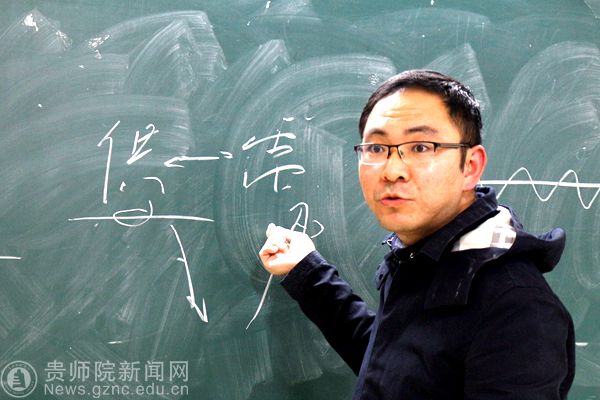 供 需
贵师院新闻网
News.gznc.edu.cn